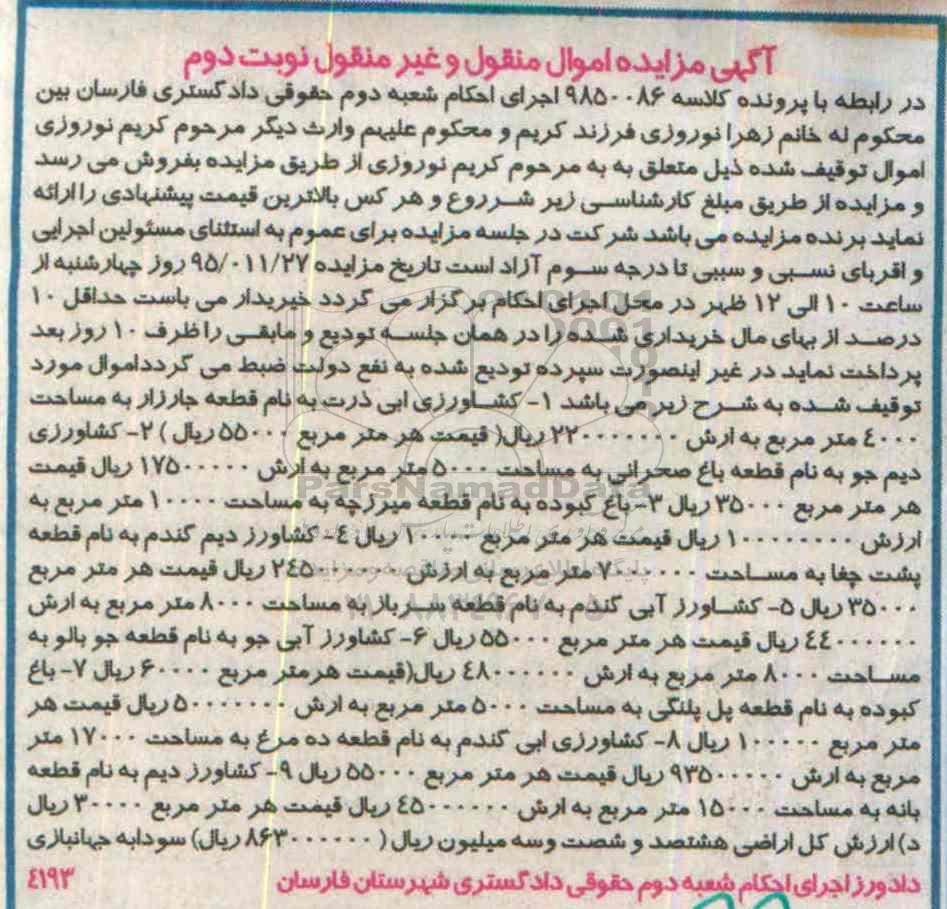 آگهی مزایده اموال منقول و غیر منقول نوبت دوم
در رابطه با پرونده کلاسه ۹۸۵۰۰۸۶ اجرای احکام شعبه دوم حقوقی دادگستری فارسان بین
محکوم له خانم زهرا نوروزی فرزند کریم و محکوم علیهم وارث دیگر مرحوم کریم نوروزی
اموال توقیف شده ذیل متعلق به به مرحوم کریم نوروزی از طریق مزایده بفروش می رسد
و مزایده از طریق مبلغ کارشناسی زیر شرروع و هر کس بالاترین قیمت پیشنهادی را ارائه
نماید برنده مزایده می باشد شرکت در جلسه مزایده برای عموم به استثنای مسئولین اجرایی
و اقربای نسبی و سببی تا درجه سوم آزاد است تاریخ مزایده ۹۵/۰۱۱/۲۷ روز چهارشنبه از
ساعت ۱۰ الی ۱۲ ظهر در محل اجرای احکام برگزار می گردد خیریدار می باست حداقل ۱۰
درصد از بهای مال خریداری شده را در همان جلسه تودیع و مابقی را ظرف ۱۰ روز بعد
پرداخت نماید در غیر اینصورت سپرده تودیع شده به نفع دولت ضبط می گردداموال مورد
توقیف شده به شرح زیر می باشد ۱- کشاورزی ابی ذرت به نام قطعه جارزار به مساحت
۴۰۰۰ متر مربع به ارش ۲۲۰۰۰۰۰۰۰ ریال( قیمت هر متر مربع ۵۵۰۰۰ ریال ) ۲- کشاورزی
دیم جو به نام قطعه باغ صحرانی به مساحت ۵۰۰۰ متر مربع به ارش ۱۷۵۰۰۰۰۰ ریال قیمت
هر متر مربع ۳۵۰۰۰ ریال ۳- باغ کبوده به نام قطعه میرزچه به مساحت ۱۰۰۰۰ متر مربع به
ارزش ۱۰۰۰۰۰۰۰۰۰ ریال قیمت هر متر مربع ۱۰۰۰۰۰ ریال ۴- کشاورز دیم گندم به نام قطعه
پشت چغا به مساحت ۷۰۰۰۰۰ متر مربع به ارزش ۲۴۵۰۰۰۰۰ ریال قیمت هر متر مربع
۳۵۰۰۰ ریال ۵- کشاورز آبی گندم به نام قطعه سرباز به مساحت ۸۰۰۰ متر مربع به ارش
۴۴۰۰۰۰۰۰۰ ریال قیمت هر متر مربع ۵۵۰۰۰ ریال ۶- کشاورز آبی جو به نام قطعه جو بالو به
مساحت ۸۰۰۰ متر مربع به ارش ۴۸۰۰۰۰۰۰۰ ریال(قیمت هرمتر مربع ۶۰۰۰۰ ریال ۷- باغ
کبوده به نام قطعه پل پلنگی به مساحت ۵۰۰۰ متر مربع به ارش ۵۰۰۰۰۰۰۰۰ ریال قیمت هر
متر مربع ۱۰۰۰۰۰ ریال ۸- کشاورزی ابی گندم به نام قطعه ده مرغ به مساحت ۱۷۰۰۰ متر
مربع به ارش ۹۳۵۰۰۰۰۰۰ ریال قیمت هر متر مربع ۵۵۰۰۰ ریال ۹- کشاورز دیم به نام قطعه
بانه به مساحت ۱۵۰۰۰ متر مربع به ارش ۴۵۰۰۰۰۰۰۰ ریال قیمت هر متر مربع ۳۰۰۰۰ ریال
د) ارزش کل اراضی هشتصد و شصت وسه میلیون ریال ( ۸۶۳۰۰۰۰۰۰ ریال) سودابه جهانبازی
دادورز اجرای احکام شعبه دوم حقوقی دادگستری شهرستان فارسان ۴۱۹۳
ParsNamadData